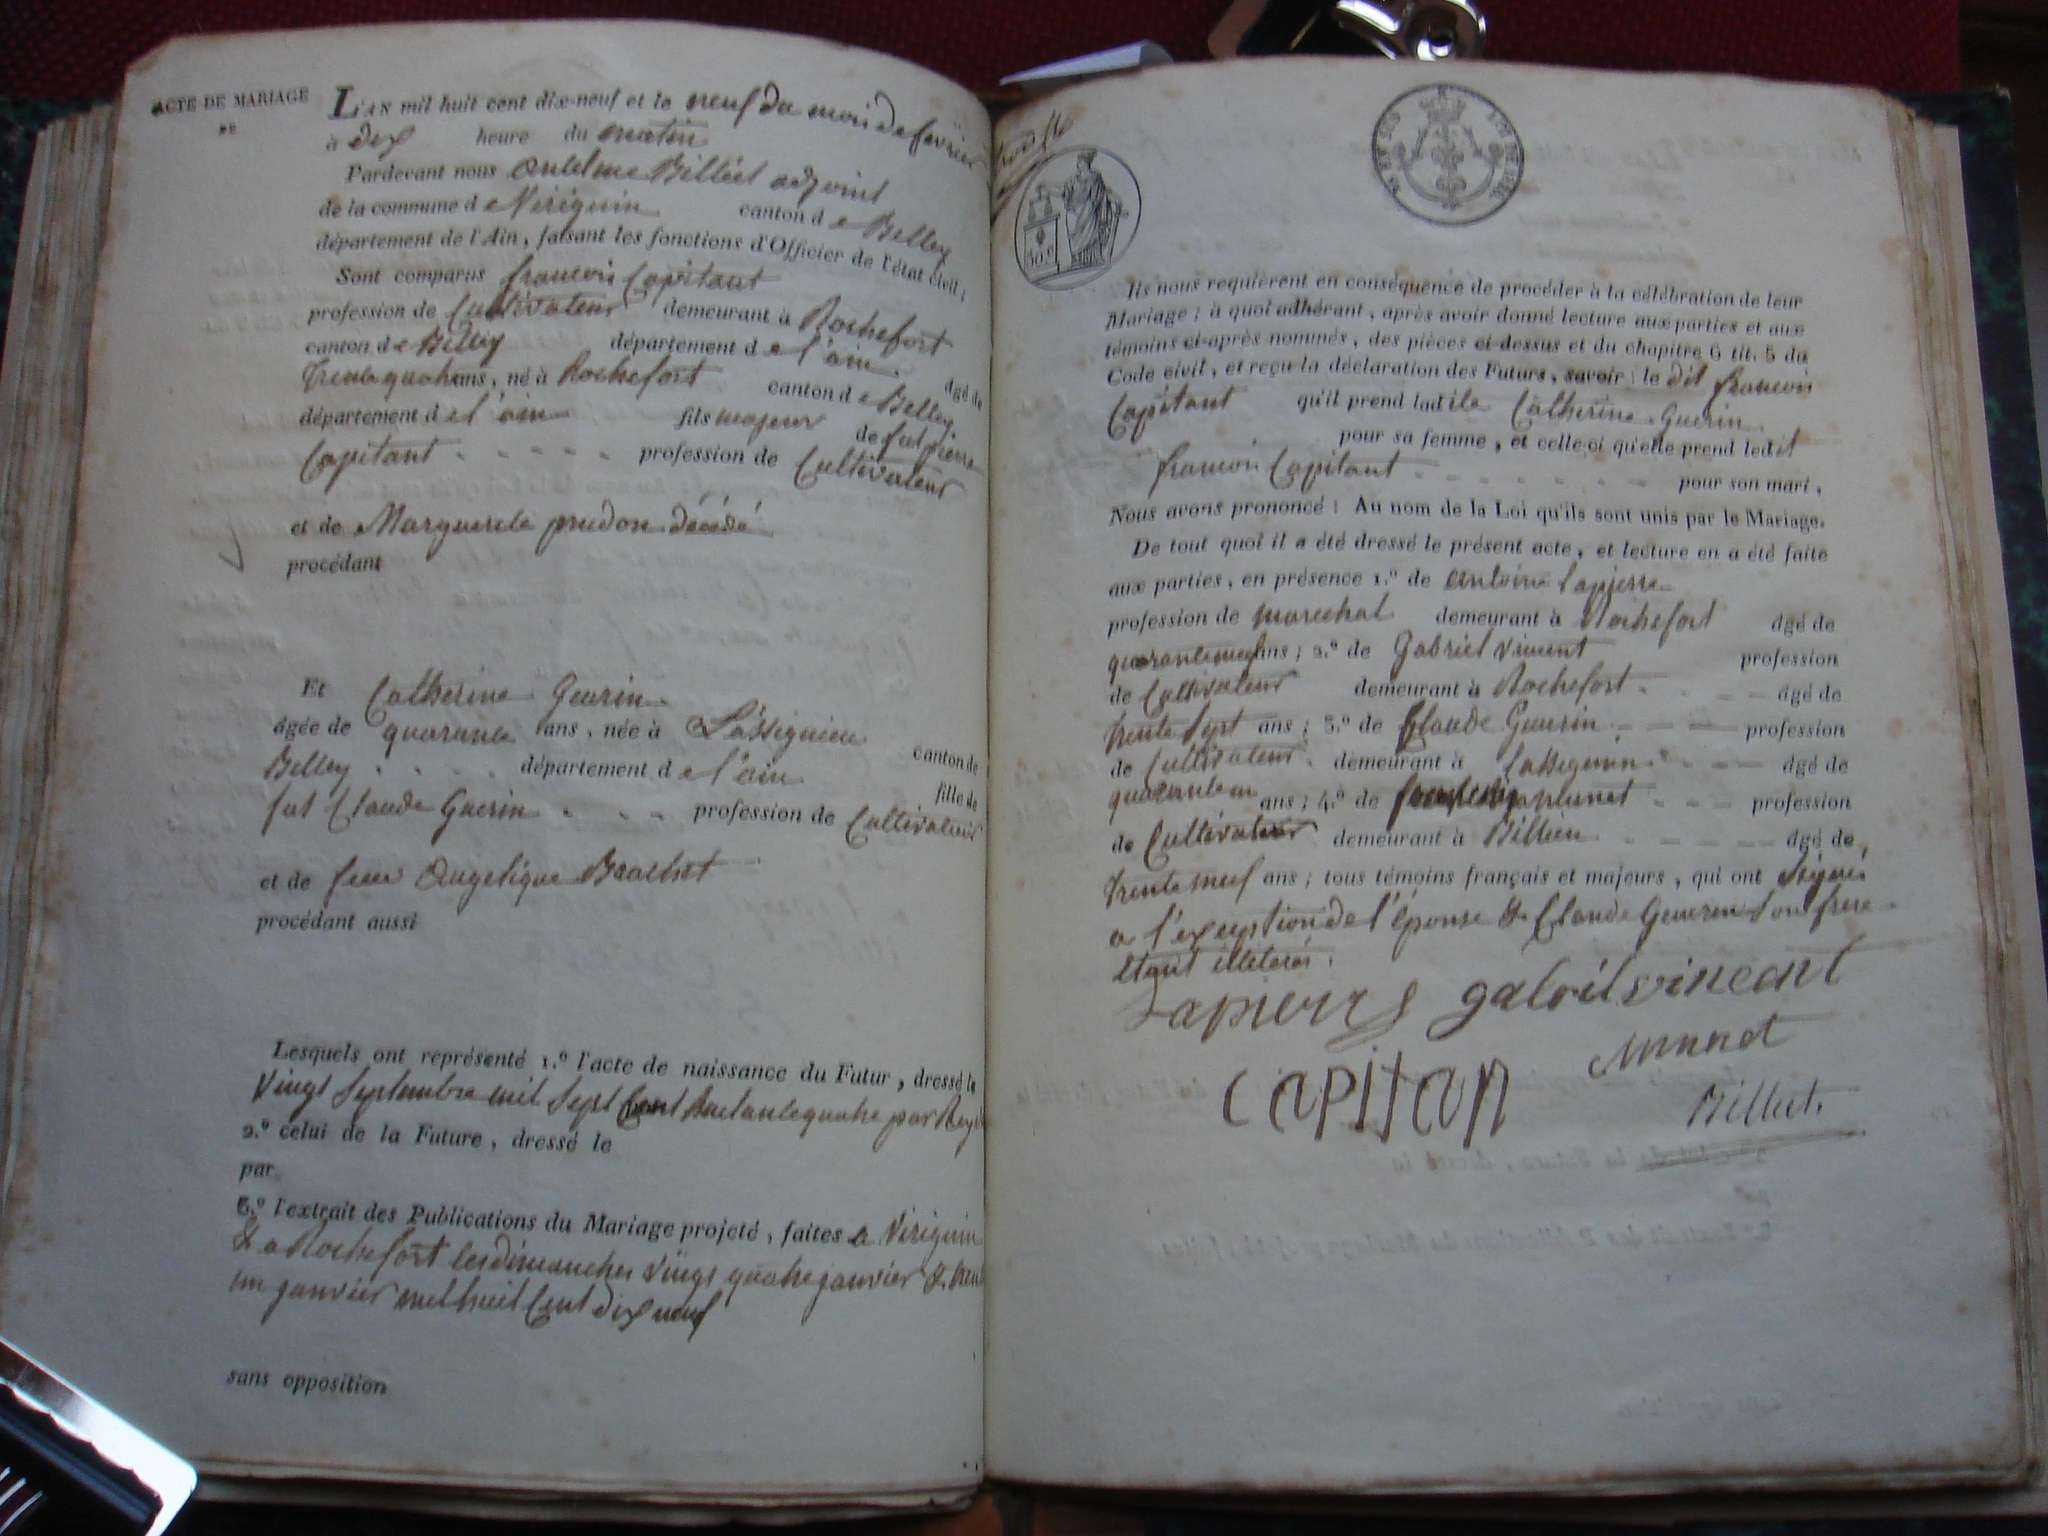 ACTE DE MARIAGE
DE
L'AN mil huit cent dix-neuf et le neuf du mois de fevrier
à dix heure du matin
Pardevant nous Antelme Billiet adjoint
de la commune de Viriguin canton de Belley
département de l'Ain, faisant les fonctions d'Officier de l'état civil;
Sont comparus francois Capitant
profession de Cultivateur demeurant à Rochefort
canton de Belley département de l'ain. âgé de
trente quatre ans, né à Rochefort canton de Belley
département de l'ain fils majeur de fut pierre
Capitant profession de Cultivateur
et de Marguerite prudon décédé
procédant
Et Catherine Guerin
âgée de quarante ans, née à Lassignieu canton de
Belley département de l'ain fille de
fut Claude Guerin profession de Cultivateur
et de feue Angelique Brachet
procédant aussi
Lesquels ont représenté 1.º l'acte de naissance du Futur, dressé le
vingt Septembre mil Sept Cent huetante quatre par Rey
2.º celui de la Future, dressé le
par
3.º l'extrait des Publications du Mariage projeté, faites a Viriguin
& a Rochefort les dimanches vingt quatre janvier & trente
un janvier mil huit Cent dix neuf
sans opposition
30.c
Ils nous requièrent en conséquence de procéder à la célébration de leur
Mariage; à quoi adhérant, après avoir donné lecture aux parties et aux
témoins ci-après nommés, des pièces ci-dessus et du chapitre 6 tit. 5 du
Code civil, et reçu la déclaration des Futurs, savoir: le dit francois
Capitant qu'il prend ladite Catherine Guerin
pour sa femme, et celle-ci qu'elle prend ledit
francois Capitant pour son mari,
Nous avons prononcé: Au nom de la Loi qu'ils sont unis par le Mariage.
De tout quoi il a été dressé le présent acte, et lecture en a été faite
aux parties, en présence 1.º de Antoine Lapierre
profession de marechal demeurant à Rochefort âgé de
quarante neuf ans; 2.º de Gabriel vincent profession
de Cultivateur demeurant à Rochefort âgé de
trente Sept ans; 3.º de Claude Guerin profession
de Cultivateur demeurant à Lassignieu âgé de
quarante un ans; 4.º de profession
de Cultivateur demeurant à Billieu âgé de
trente neuf ans; tous témoins français et majeurs, qui ont Signé
a l'exception de l'épouse & Claude Guerin Son frere
etant illiterés.
Lapierre gabril vincent
capitan
Billiet